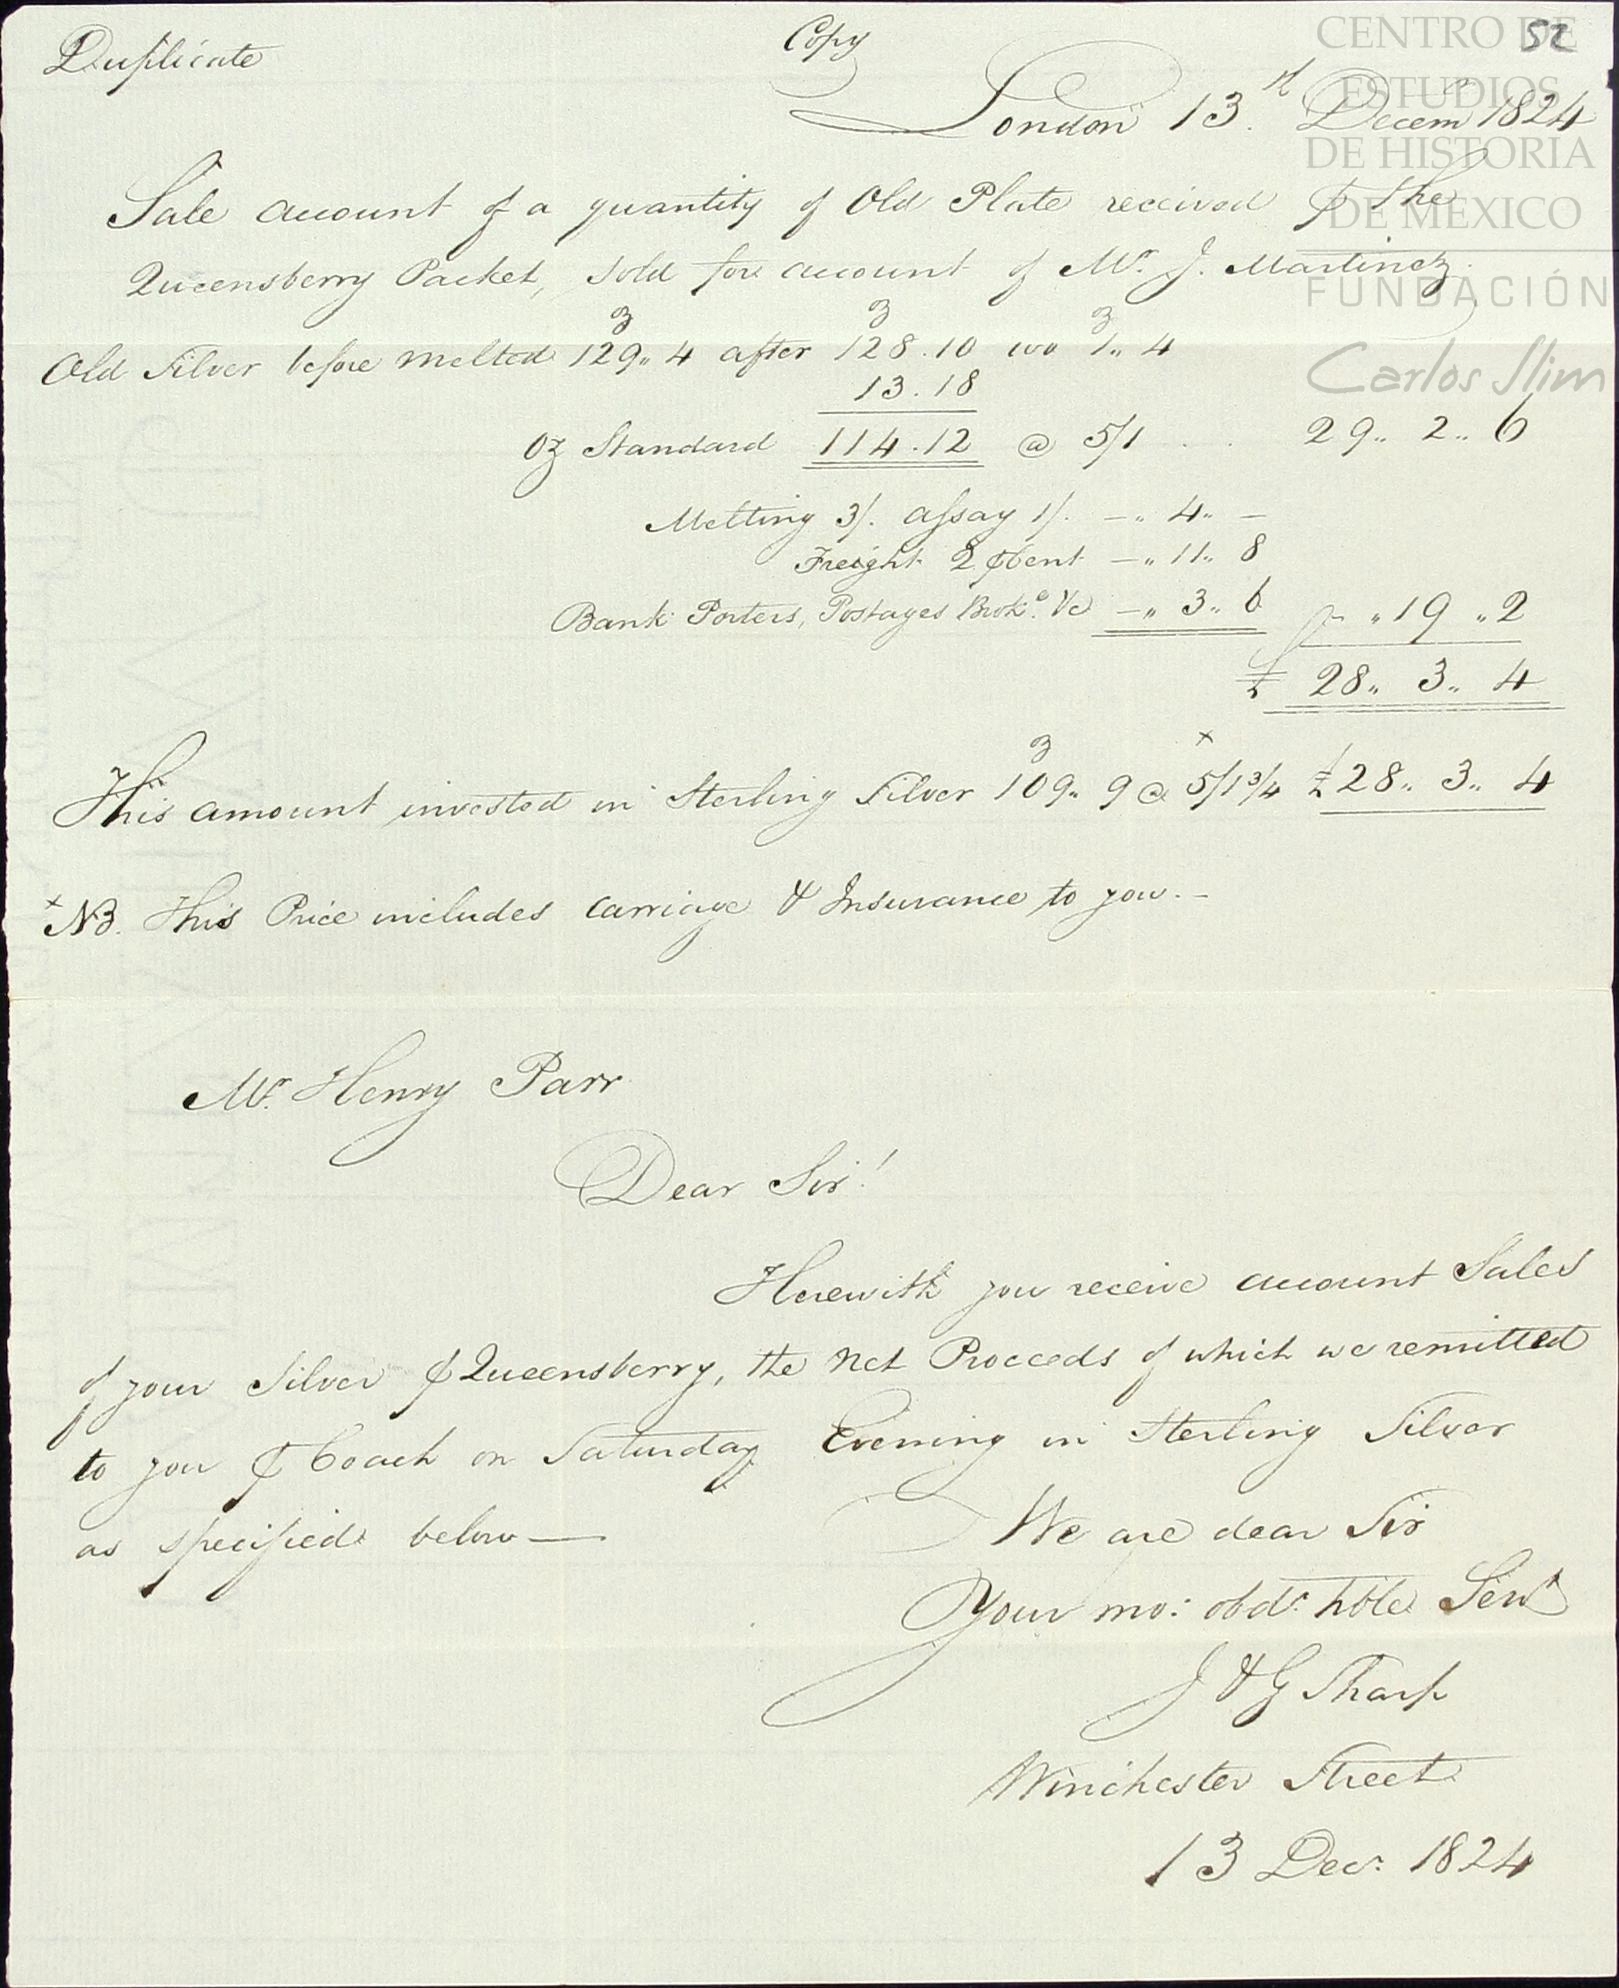 Duplicate
Copy
52
London 13th Decemr 1824
Sale account of a quantity of Old Plate received ⅌ the
Queensberry Packet, sold for account of Mr. J. Martinez.
Old Silver before melted 129℥„ 4 after 128℥.10 wo 1℥„ 4
13.18
Oz Standard 114.12 @ 5/1 . . 29„ 2„ 6
Melting 3/. assay 1/. —„ 4„ —
Freight 2 ⅌Cent —„ 11„ 8
Bank Porters, Postages Broke. &c —„ 3„ 6 — „19 „2
£ 28„ 3„ 4
This amount invested in Sterling Silver 109℥„ 9 @ 5/1¾ × £28„ 3„ 4
× NB. This Price includes Carriage & Insurance to you.–
Mr. Henry Parr
Dear Sir!
Herewith you receive account Sales
of your Silver ⅌ Queensberry, the net Proceeds of which we remitted
to you ⅌ Coach on Saturday Evening in Sterling Silver
as specified below—
We are dear Sir
Your mo: obdt. hble Servt
J & G Sharp
Winchester Street
13 Decr. 1824
CENTRO DE
ESTUDIOS
DE HISTORIA
DE MEXICO
FUNDACIÓN
Carlos Slim